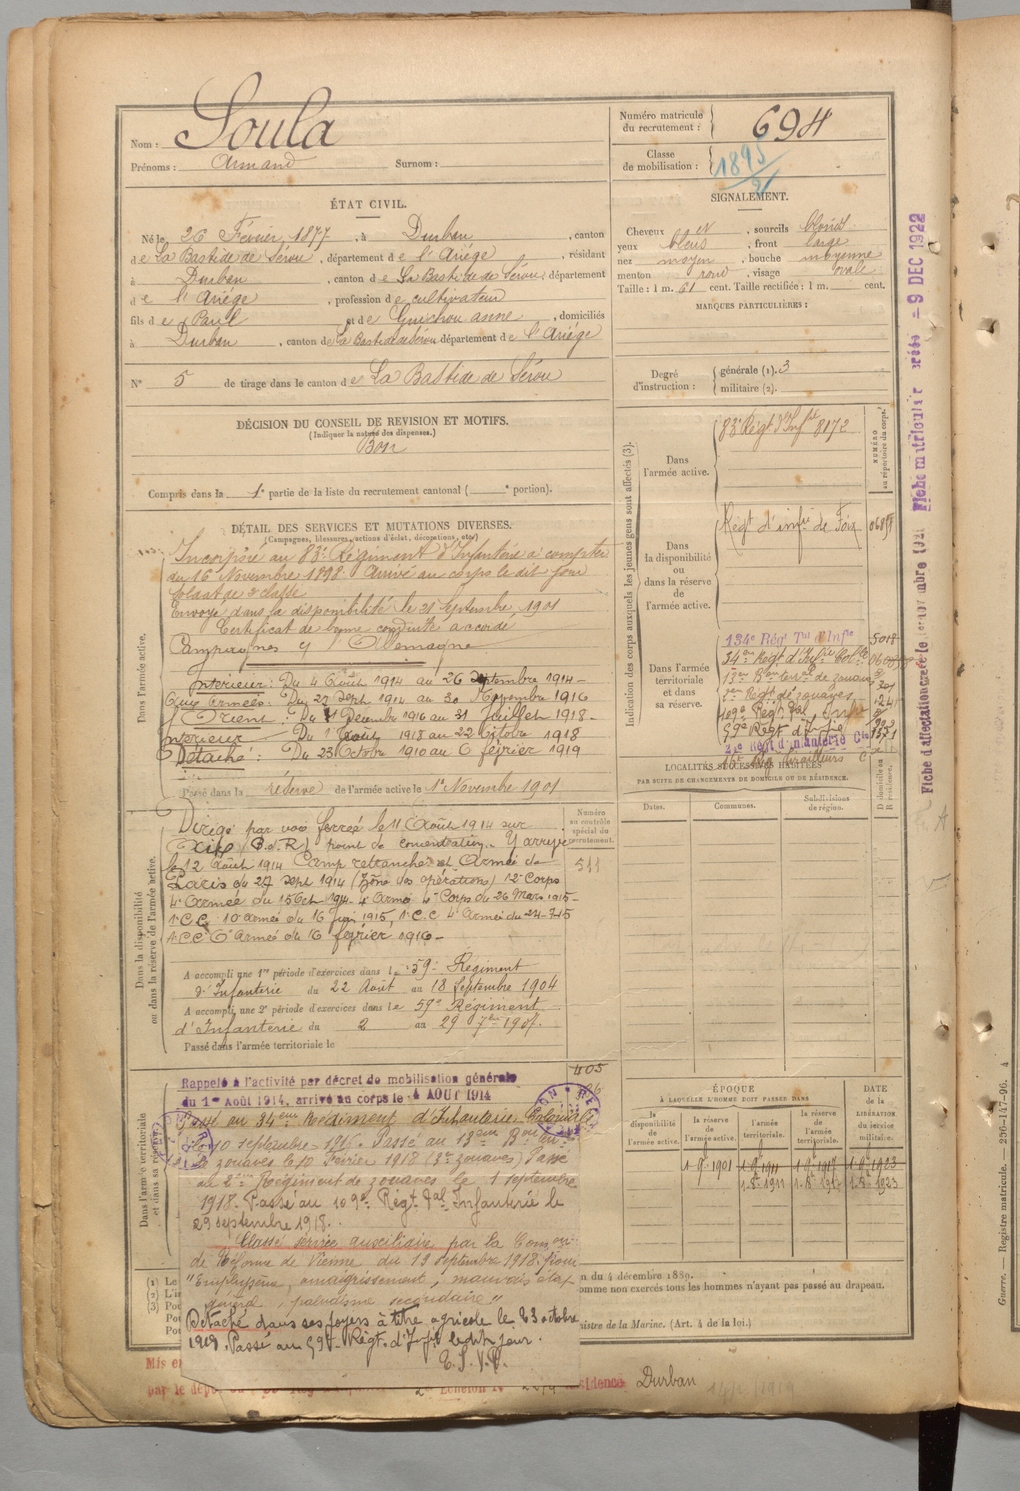 Nom : Soula
Prénoms : Armand Surnom :
Numéro matricule du recrutement : 694
Classe de mobilisation : 1895
ÉTAT CIVIL.
Né le 26 Février 1877, à Durban, canton
de La Bastide de Sérou, département de l'Ariége, résidant
à Durban, canton de La Bastide de Sérou, département
de l'Ariége, profession de cultivateur
fils de Paul et de Guichou anne, domiciliés
à Durban, canton de La Bastide de Sérou département de l'Ariége
N° 5 de tirage dans le canton de La Bastide de Sérou
SIGNALEMENT.
Cheveux et, sourcils blonds
yeux bleus, front large
nez moyen, bouche moyenne
menton rond, visage ovale
Taille : 1 m. 61 cent. Taille rectifiée : 1 m. cent.
MARQUES PARTICULIÈRES :
Degré d'instruction : générale (1). 3
militaire (2).
DÉCISION DU CONSEIL DE REVISION ET MOTIFS.
(Indiquer la nature des dispenses.)
Bon
Compris dans la 1e partie de la liste du recrutement cantonal ( e portion).
DÉTAIL DES SERVICES ET MUTATIONS DIVERSES.
(Campagnes, blessures, actions d'éclat, décorations, etc.)
Dans l'armée active.
Incorporé au 83e Régiment d'Infanterie à compter
du 16 Novembre 1898. Arrivé au corps le dit jour
Soldat de 2e classe
Envoyé dans la disponibilité le 21 Septembre 1901
Certificat de bonne conduite accordé
Campagnes c/ l'Allemagne
Intérieur : Du 4 Août 1914 au 26 Septembre 1914 -
Aux armées : Du 27 Sept 1914 au 30 Novembre 1916
Orient : Du 1 Décembre 1916 au 31 Juillet 1918 -
Intérieur Du 1 Août 1918 au 22 Octobre 1918
Détaché : Du 23 Octobre 1918 au 6 février 1919
Passé dans la réserve de l'armée active le 1er Novembre 1901
Indication des corps auxquels les jeunes gens sont affectés (3).
NUMÉRO au répertoire du corps.
Dans l'armée active.
83e Régt d'Infie 8172
Dans la disponibilité ou dans la réserve de l'armée active.
Régt d'infie de Foix
Dans l'armée territoriale et dans sa réserve.
134e Rég Tal d'Infie 5018
34ème Régt d'Infie Colle
13ème Bon ter al de zouaves
2ème Régt de zouaves
109e Régt Tal Infie
59e Régt d'Infie
21e Régt d'Infanterie Cle
16e Rég tirailleurs C
LOCALITÉS SUCCESSIVES HABITÉES
PAR SUITE DE CHANGEMENTS DE DOMICILE OU DE RÉSIDENCE.
Dates. Communes. Subdivisions de région. D domicile ou R résidence.
Dans la disponibilité ou dans la réserve de l'armée active.
Numéro au contrôle spécial du recrutement.
511
Dirigé par voie ferrée le 11 Août 1914 sur
Aix (B.d.R) point de concentration. Y arrivé
le 12 Août 1914 Camp retranché et Armée de
Paris du 27 Sept 1914 (Zône des opérations) 12e Corps
4e Armée du 15 Oct 1914 - 4e Armée 4e Corps du 26 Mars 1915 -
1er C.C. 10e Armée du 16 juin 1915, 1er C.C 4e Armée du 24-7-15
1er C.C 6e Armée du 16 février 1916 -
A accompli une 1re période d'exercices dans le 59e Régiment
d'Infanterie du 22 Août au 18 Septembre 1904
A accompli une 2e période d'exercices dans le 59e Régiment
d'Infanterie du 2 au 29 7bre 1907.
Passé dans l'armée territoriale le
Dans l'armée territoriale et dans sa réserve.
405
Rappelé à l'activité par décret de mobilisation générale
du 1er Août 1914, arrivé au corps le 4 AOUT 1914
Passé au 34ème Régiment d'Infanterie Coloniale
le 10 septembre 1915. Passé au 13ème Bon
de zouaves le 10 Février 1918 (3e zouaves) Passé
au 2ème Régiment de zouaves le 1 septembre
1918. Passé au 109e Régt Tal Infanterie le
23 septembre 1918.
Classé service auxiliaire par la Comon
de Réforme de Vienne du 19 septembre 1918 pour
"Emphysème, amaigrissement, mauvais état
général, paludisme secondaire"
Détaché dans ses foyers à titre agricole le 23 octobre
1918. Passé au 59e Régt d'Infie le dit jour.
T.S.V.P.
ÉPOQUE
À LAQUELLE L'HOMME DOIT PASSER DANS
la disponibilité de l'armée active. la réserve de l'armée active. l'armée territoriale. la réserve de l'armée territoriale.
DATE de la LIBÉRATION du service militaire.
1-9e 1901 1-9e 1911 1-9e 1917 1-9e 1923
n du 4 décembre 1889.
omme non exercés tous les hommes n'ayant pas passé au drapeau.
nistre de la Marine. (Art. 4 de la loi.)
Mis en
par le dép
résidence Durban
Fiche d'affectation créée le
Fiche matriculaire créée - 9 DEC 1922
Guerre. — Registre matricule. — 256-147-96. 4